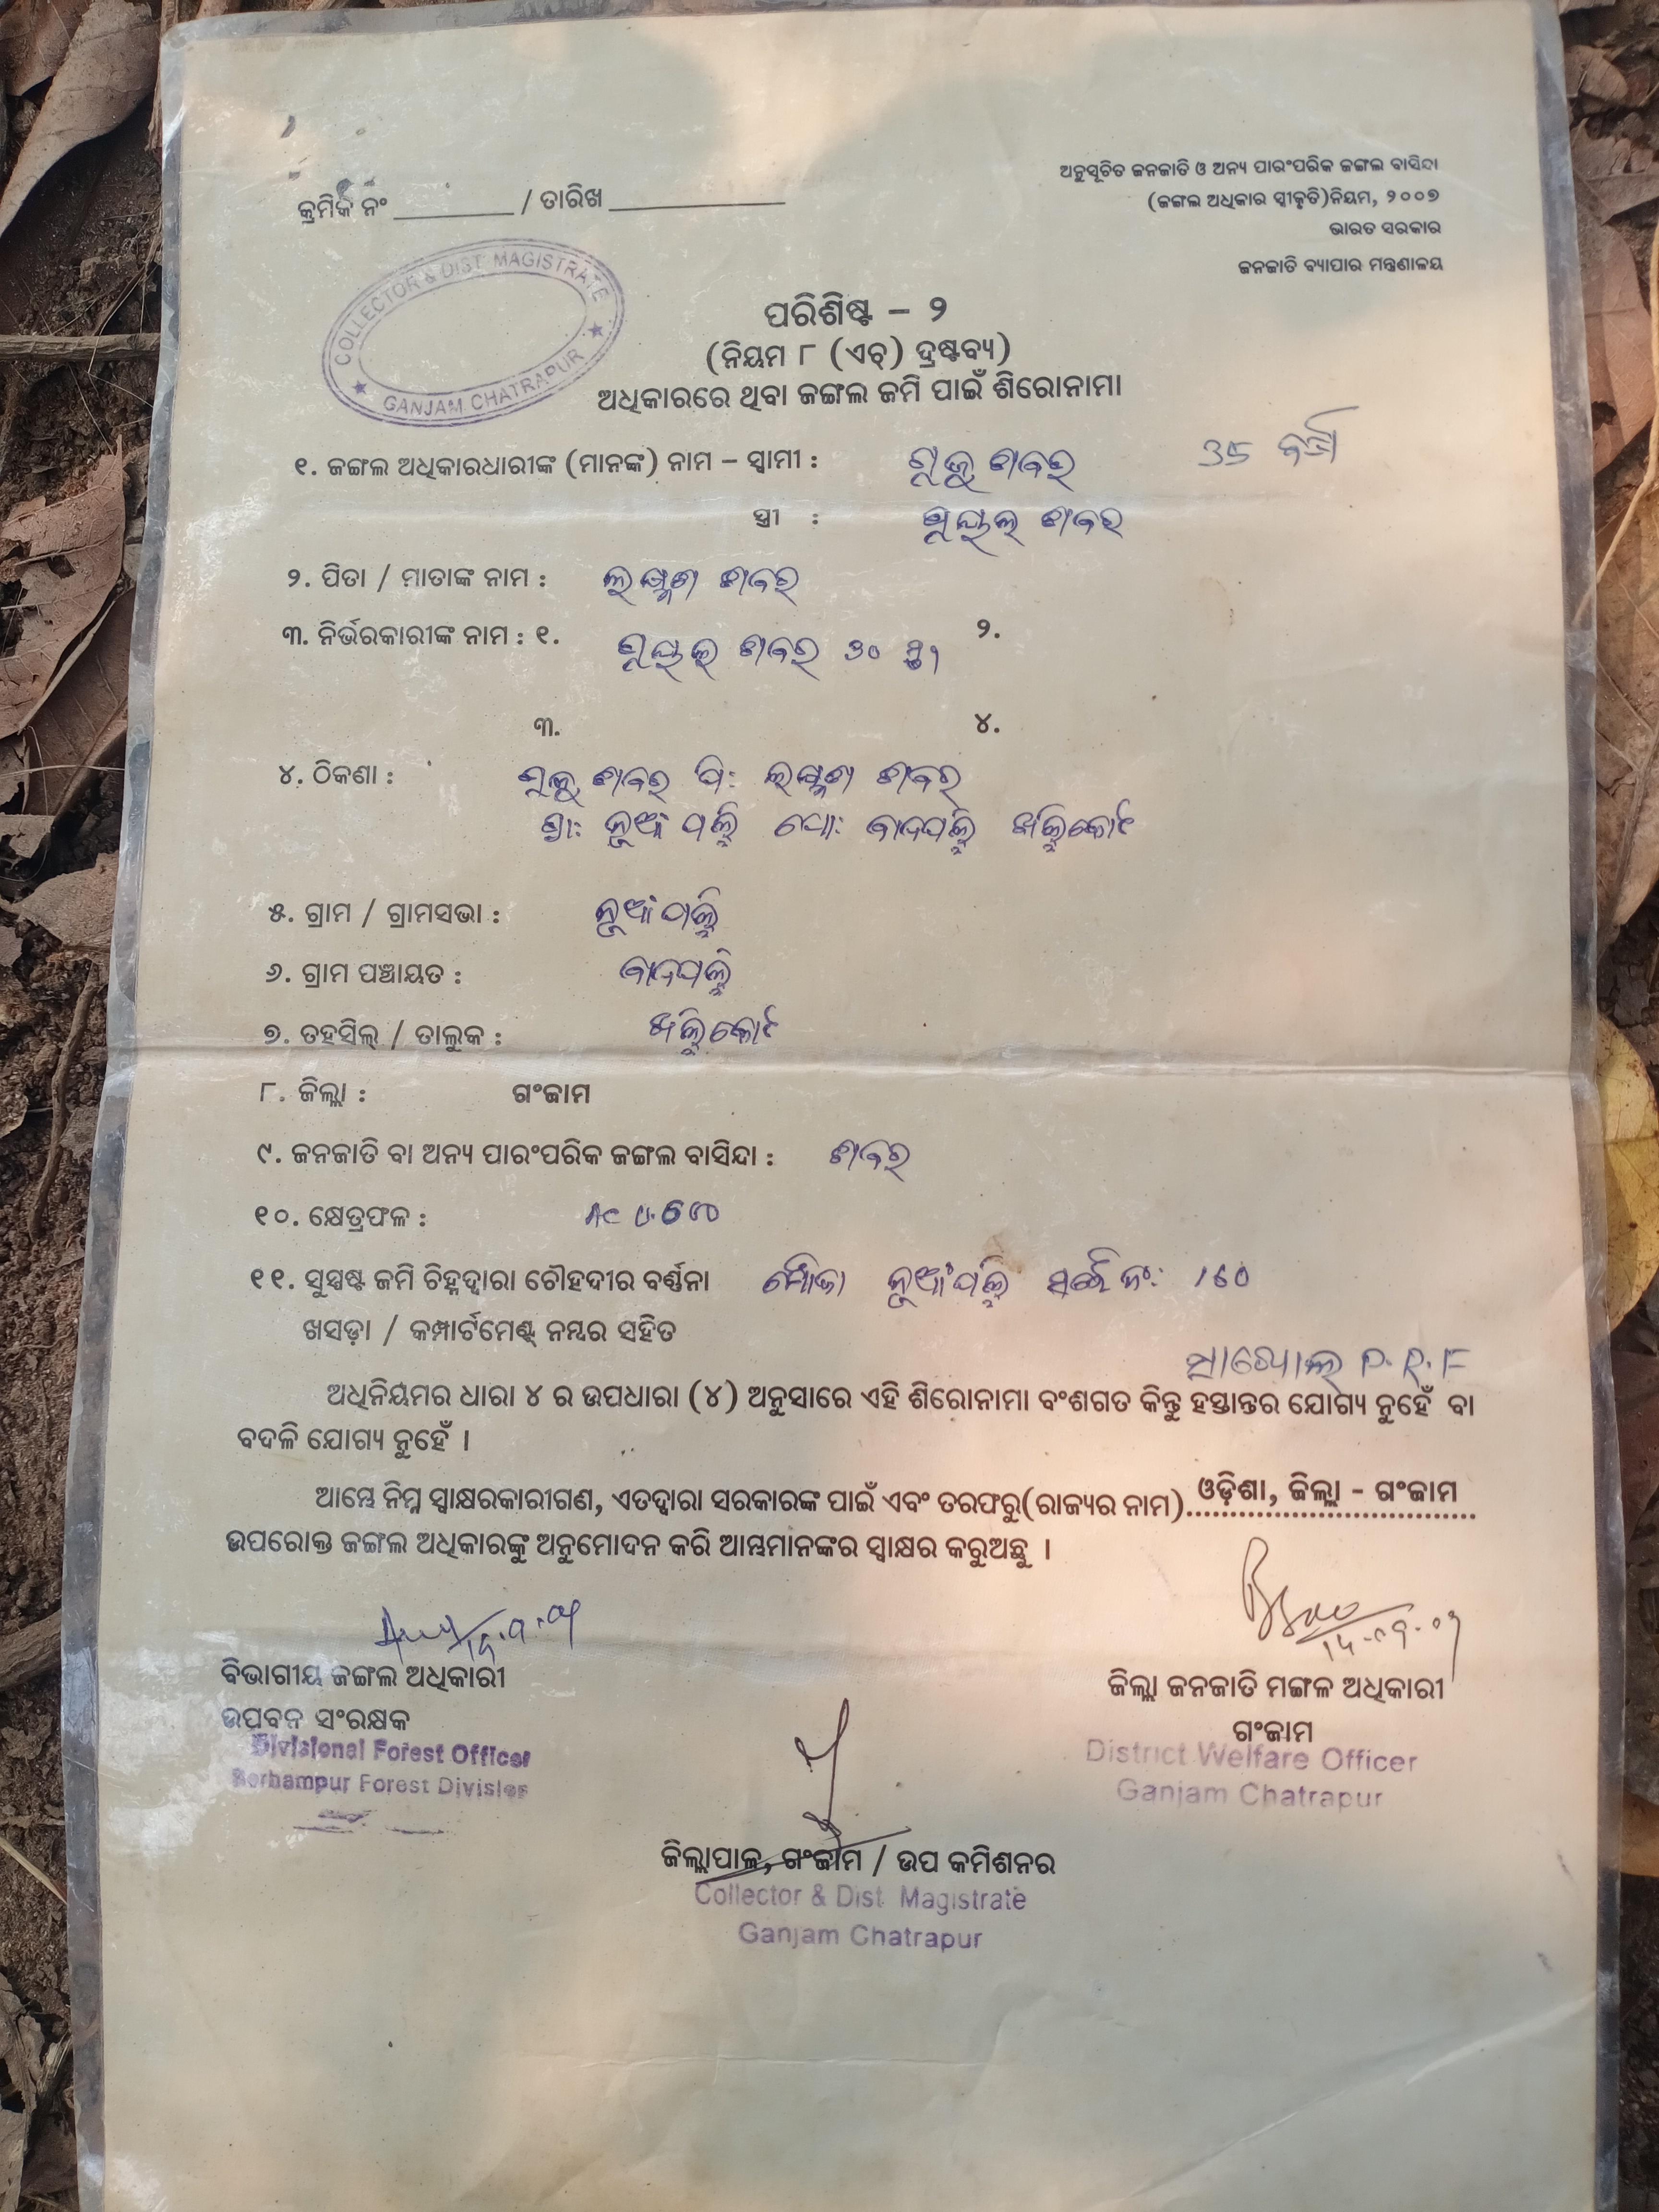 ଅନୁସୂଚିତ ଜନଜାତି ଓ ଅନ୍ୟ ପାରଂପରିକ ଜଙ୍ଗଲ ବାସିନ୍ଦା
(ଜଙ୍ଗଲ ଅଧିକାର ସ୍ୱୀକୃତି)ନିୟମ, ୨୦୦୭
ଭାରତ ସରକାର
ଜନଜାତି ବ୍ୟାପାର ମନ୍ତ୍ରଣାଳୟ
କ୍ରମିକ ନଂ ________ / ତାରିଖ ____________
COLLECTOR & DIST MAGISTRATE
GANJAM CHATRAPUR
ପରିଶିଷ୍ଟ – ୨
(ନିୟମ ୮ (ଏଚ୍) ଦ୍ରଷ୍ଟବ୍ୟ)
ଅଧିକାରରେ ଥିବା ଜଙ୍ଗଲ ଜମି ପାଇଁ ଶିରୋନାମା
୧. ଜଙ୍ଗଲ ଅଧିକାରଧାରୀଙ୍କ (ମାନଙ୍କ) ନାମ – ସ୍ୱାମୀ : ଶବର 35 ବର୍ଷ
ସ୍ତ୍ରୀ : ଶବର
୨. ପିତା / ମାତାଙ୍କ ନାମ : ଲକ୍ଷ୍ମଣ ଶବର
୩. ନିର୍ଭରକାରୀଙ୍କ ନାମ : ୧. ଶବର 30 ସ୍ତ୍ରୀ ୨.
୩. ୪.
୪. ଠିକଣା : ଶବର ପି: ଲକ୍ଷ୍ମଣ ଶବର
ଗ୍ରା: ନୂଆଁପଲ୍ଲୀ ପୋ: ବାଦପଲ୍ଲୀ ଖଲ୍ଲିକୋଟ
୫. ଗ୍ରାମ / ଗ୍ରାମସଭା : ନୂଆଁପଲ୍ଲୀ
୬. ଗ୍ରାମ ପଞ୍ଚାୟତ : ବାଦପଲ୍ଲୀ
୭. ତହସିଲ୍ / ତାଲୁକ : ଖଲ୍ଲିକୋଟ
୮. ଜିଲ୍ଲା : ଗଂଜାମ
୯. ଜନଜାତି ବା ଅନ୍ୟ ପାରଂପରିକ ଜଙ୍ଗଲ ବାସିନ୍ଦା : ଶବର
୧୦. କ୍ଷେତ୍ରଫଳ : Ac
୧୧. ସୁସ୍ପଷ୍ଟ ଜମି ଚିହ୍ନଦ୍ୱାରା ଚୌହଦୀର ବର୍ଣ୍ଣନା ମୌଜା ନୂଆଁପଲ୍ଲୀ ସର୍ଭେ ନଂ: 160
ଖସଡ଼ା / କମ୍ପାର୍ଟମେଣ୍ଟ୍ ନମ୍ବର ସହିତ
P.R.F
ଅଧିନିୟମର ଧାରା ୪ ର ଉପଧାରା (୪) ଅନୁସାରେ ଏହି ଶିରୋନାମା ବଂଶଗତ କିନ୍ତୁ ହସ୍ତାନ୍ତର ଯୋଗ୍ୟ ନୁହେଁ ବା
ବଦଳି ଯୋଗ୍ୟ ନୁହେଁ ।
ଆମ୍ଭେ ନିମ୍ନ ସ୍ୱାକ୍ଷରକାରୀଗଣ, ଏତଦ୍ୱାରା ସରକାରଙ୍କ ପାଇଁ ଏବଂ ତରଫରୁ(ରାଜ୍ୟର ନାମ) ଓଡ଼ିଶା, ଜିଲ୍ଲା - ଗଂଜାମ
ଉପରୋକ୍ତ ଜଙ୍ଗଲ ଅଧିକାରଙ୍କୁ ଅନୁମୋଦନ କରି ଆମ୍ଭମାନଙ୍କର ସ୍ୱାକ୍ଷର କରୁଅଛୁ ।
ବିଭାଗୀୟ ଜଙ୍ଗଲ ଅଧିକାରୀ
ଉପବନ ସଂରକ୍ଷକ
Divisional Forest Officer
Berhampur Forest Division
ଜିଲ୍ଲା ଜନଜାତି ମଙ୍ଗଳ ଅଧିକାରୀ
ଗଂଜାମ
District Welfare Officer
Ganjam Chatrapur
ଜିଲ୍ଲାପାଳ, ଗଂଜାମ / ଉପ କମିଶନର
Collector & Dist. Magistrate
Ganjam Chatrapur